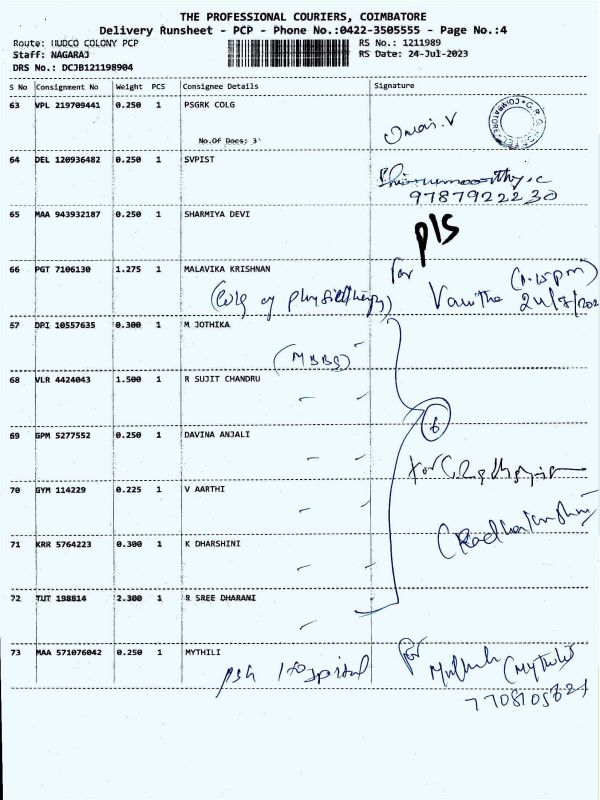 THE PROFESSIONAL COURIERS, COIMBATORE
Delivery Runsheet - PCP - Phone No.:0422-3505555 - Page No.:4
Route: HUDCO COLONY PCP
Staff: NAGARAJ
DRS No.: DCJB121198904
RS No.: 1211989
RS Date: 24-Jul-2023
S No Consignment No Weight PCS Consignee Details Signature
63 VPL 219709441 0.250 1 PSGRK COLG
No.Of Docs: 3
64 DEL 120936482 0.250 1 SVPIST
9787922230
65 MAA 943932187 0.250 1 SHARMIYA DEVI
P/S
66 PGT 7106130 1.275 1 MALAVIKA KRISHNAN
for
(Colg of physiotherapy)
Vanitha (1.15pm)
67 DPI 10557635 0.300 1 M JOTHIKA
(MBBS)
68 VLR 4424043 1.500 1 R SUJIT CHANDRU
6
69 GPM 5277552 0.250 1 DAVINA ANJALI
70 GYM 114229 0.225 1 V AARTHI
71 KRR 5764223 0.300 1 K DHARSHINI
72 TUT 198814 2.300 1 R SREE DHARANI
73 MAA 571076042 0.250 1 MYTHILI
for
psg Hospital
(Mythili)